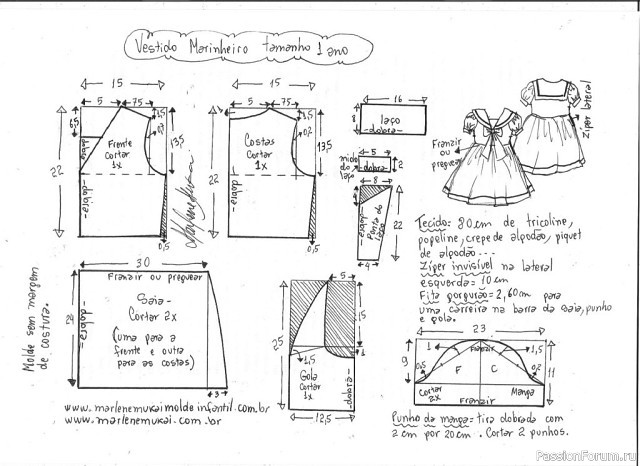 Vestido Marinheiro tamanho 1 ano
15
5 7,5
6,5
1,5
0,2
13,5
22
Frente
Cortar
1x
dobra
-dobra-
0,5
15
5 7,5
1,5
0,2
13,5
22
Costas
Cortar
1x
-dobra-
0,5
16
8
laço
-dobra-
5
miolo
do
laço
2
-dobra-
8
Ponta do
laço
-dobra-
22
4
Franzir
ou
preguear
Zíper lateral
Tecido= 80cm de tricoline,
popeline, crepe de algodão, piquet
de algodão...
Zíper invisível na lateral
esquerda= 10cm
Fita gorgurão= 2,60cm para
uma carreira na barra da saia, punho
e gola.
30
Franzir ou preguear
24
-dobra-
Saia-
Cortar 2x
(uma para a
frente e outra
para as costas)
3
Molde sem margem
de costura.
5
15
25
1,5
1
Gola
Cortar
1x
-dobra-
12,5
23
Franzir
1
1,5
9
0,5
F C
0,2
11
Cortar
2x
Manga
Franzir
Punho da manga= tira dobrada com
2cm por 20cm. Cortar 2 punhos.
www.marlenemukaimoldeinfantil.com.br
www.marlenemukai.com.br
PassionForum.ru